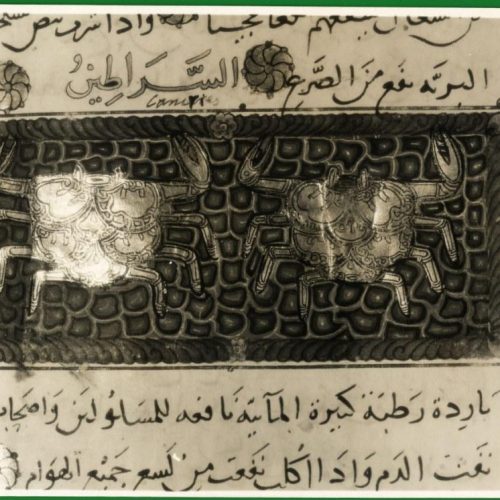 ينفعهم نفعا عجيبا واذا
البريه نفع من الصرع السراطين
Cancries
باردة رطبة كبيرة المآئية نافعه للمسلولين واصحاب
نفث الدم واذا اكلت نفعت من لسع جميع الهوام